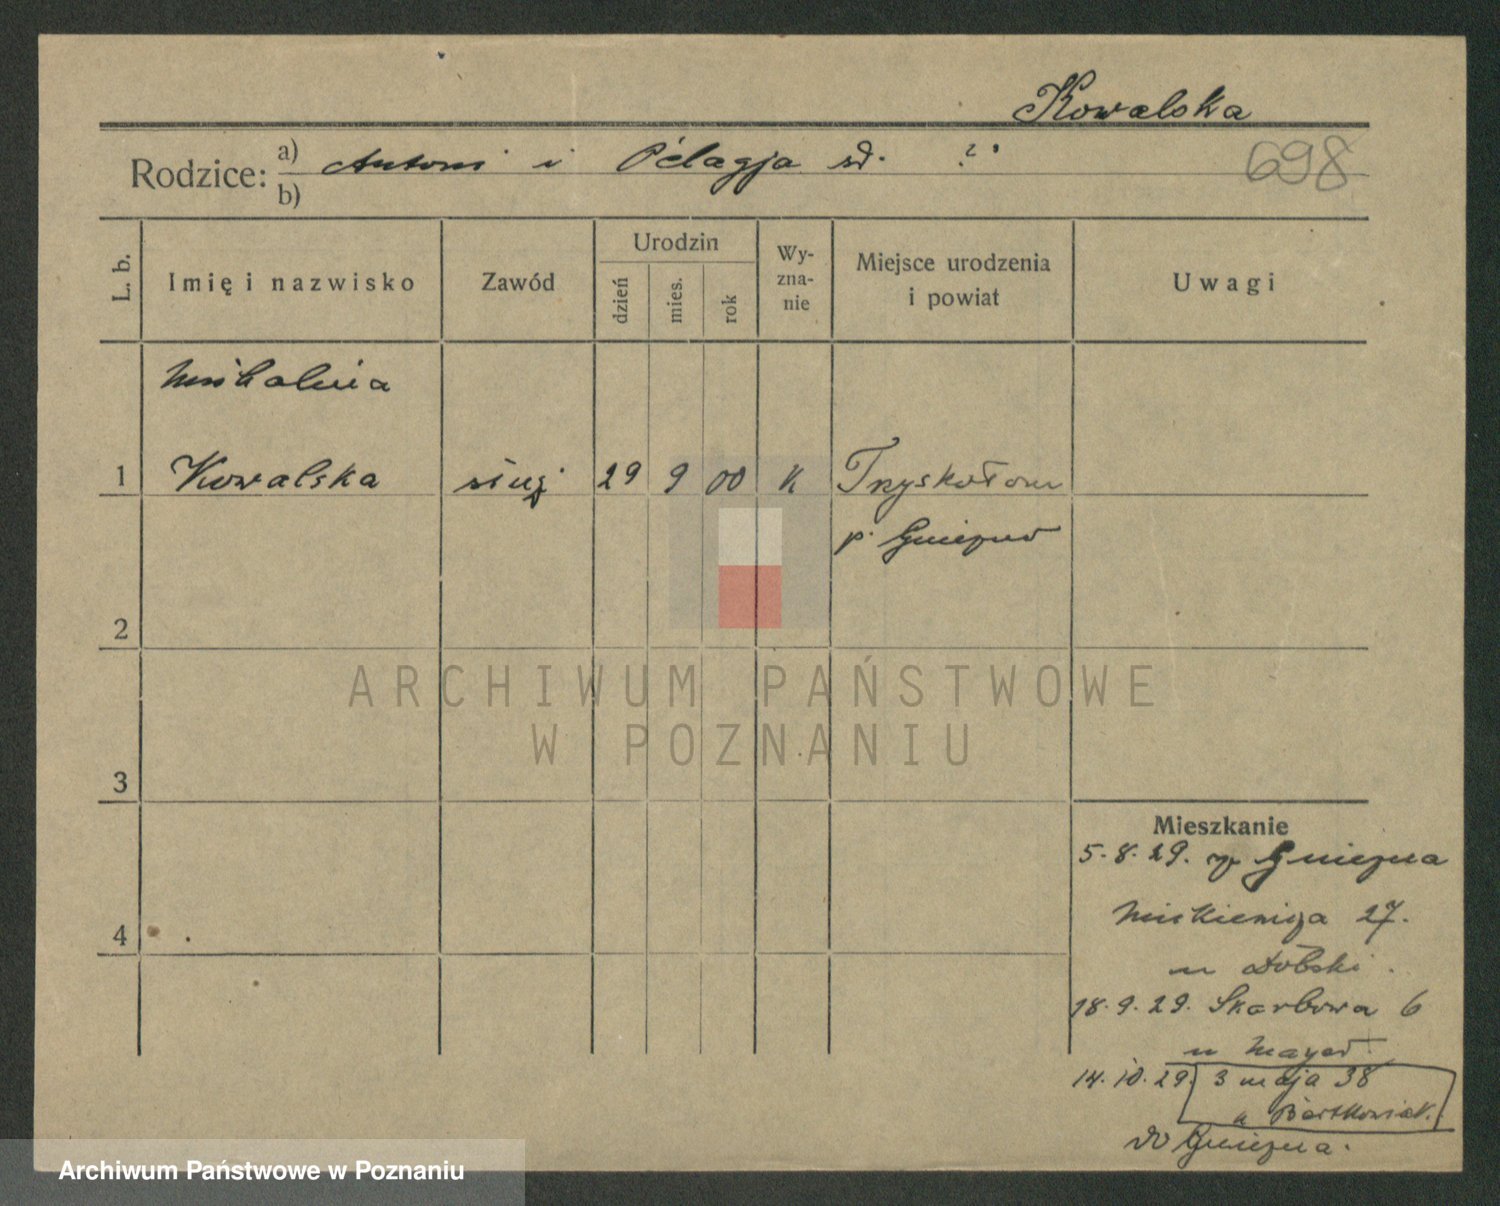 Kowalska
Rodzice: a) Antoni i Pelagja zd. ?
b)
698
L. b.
Imię i nazwisko
Zawód
Urodzin
dzień
mies.
rok
Wy-
zna-
nie
Miejsce urodzenia
i powiat
Uwagi
Michalina
1 Kowalska służ. 29 9 00 k Trzyskołom
p. Gniezno
2
3
4
Mieszkanie
5.8.29. z Gniezna
27.
u Dolski.
18.9.29. Skarbowa 6
u
14.10.29. 3 maja 38
u Bartkowiak.
do Gniezna.
ARCHIWUM PAŃSTWOWE
W POZNANIU
Archiwum Państwowe w Poznaniu